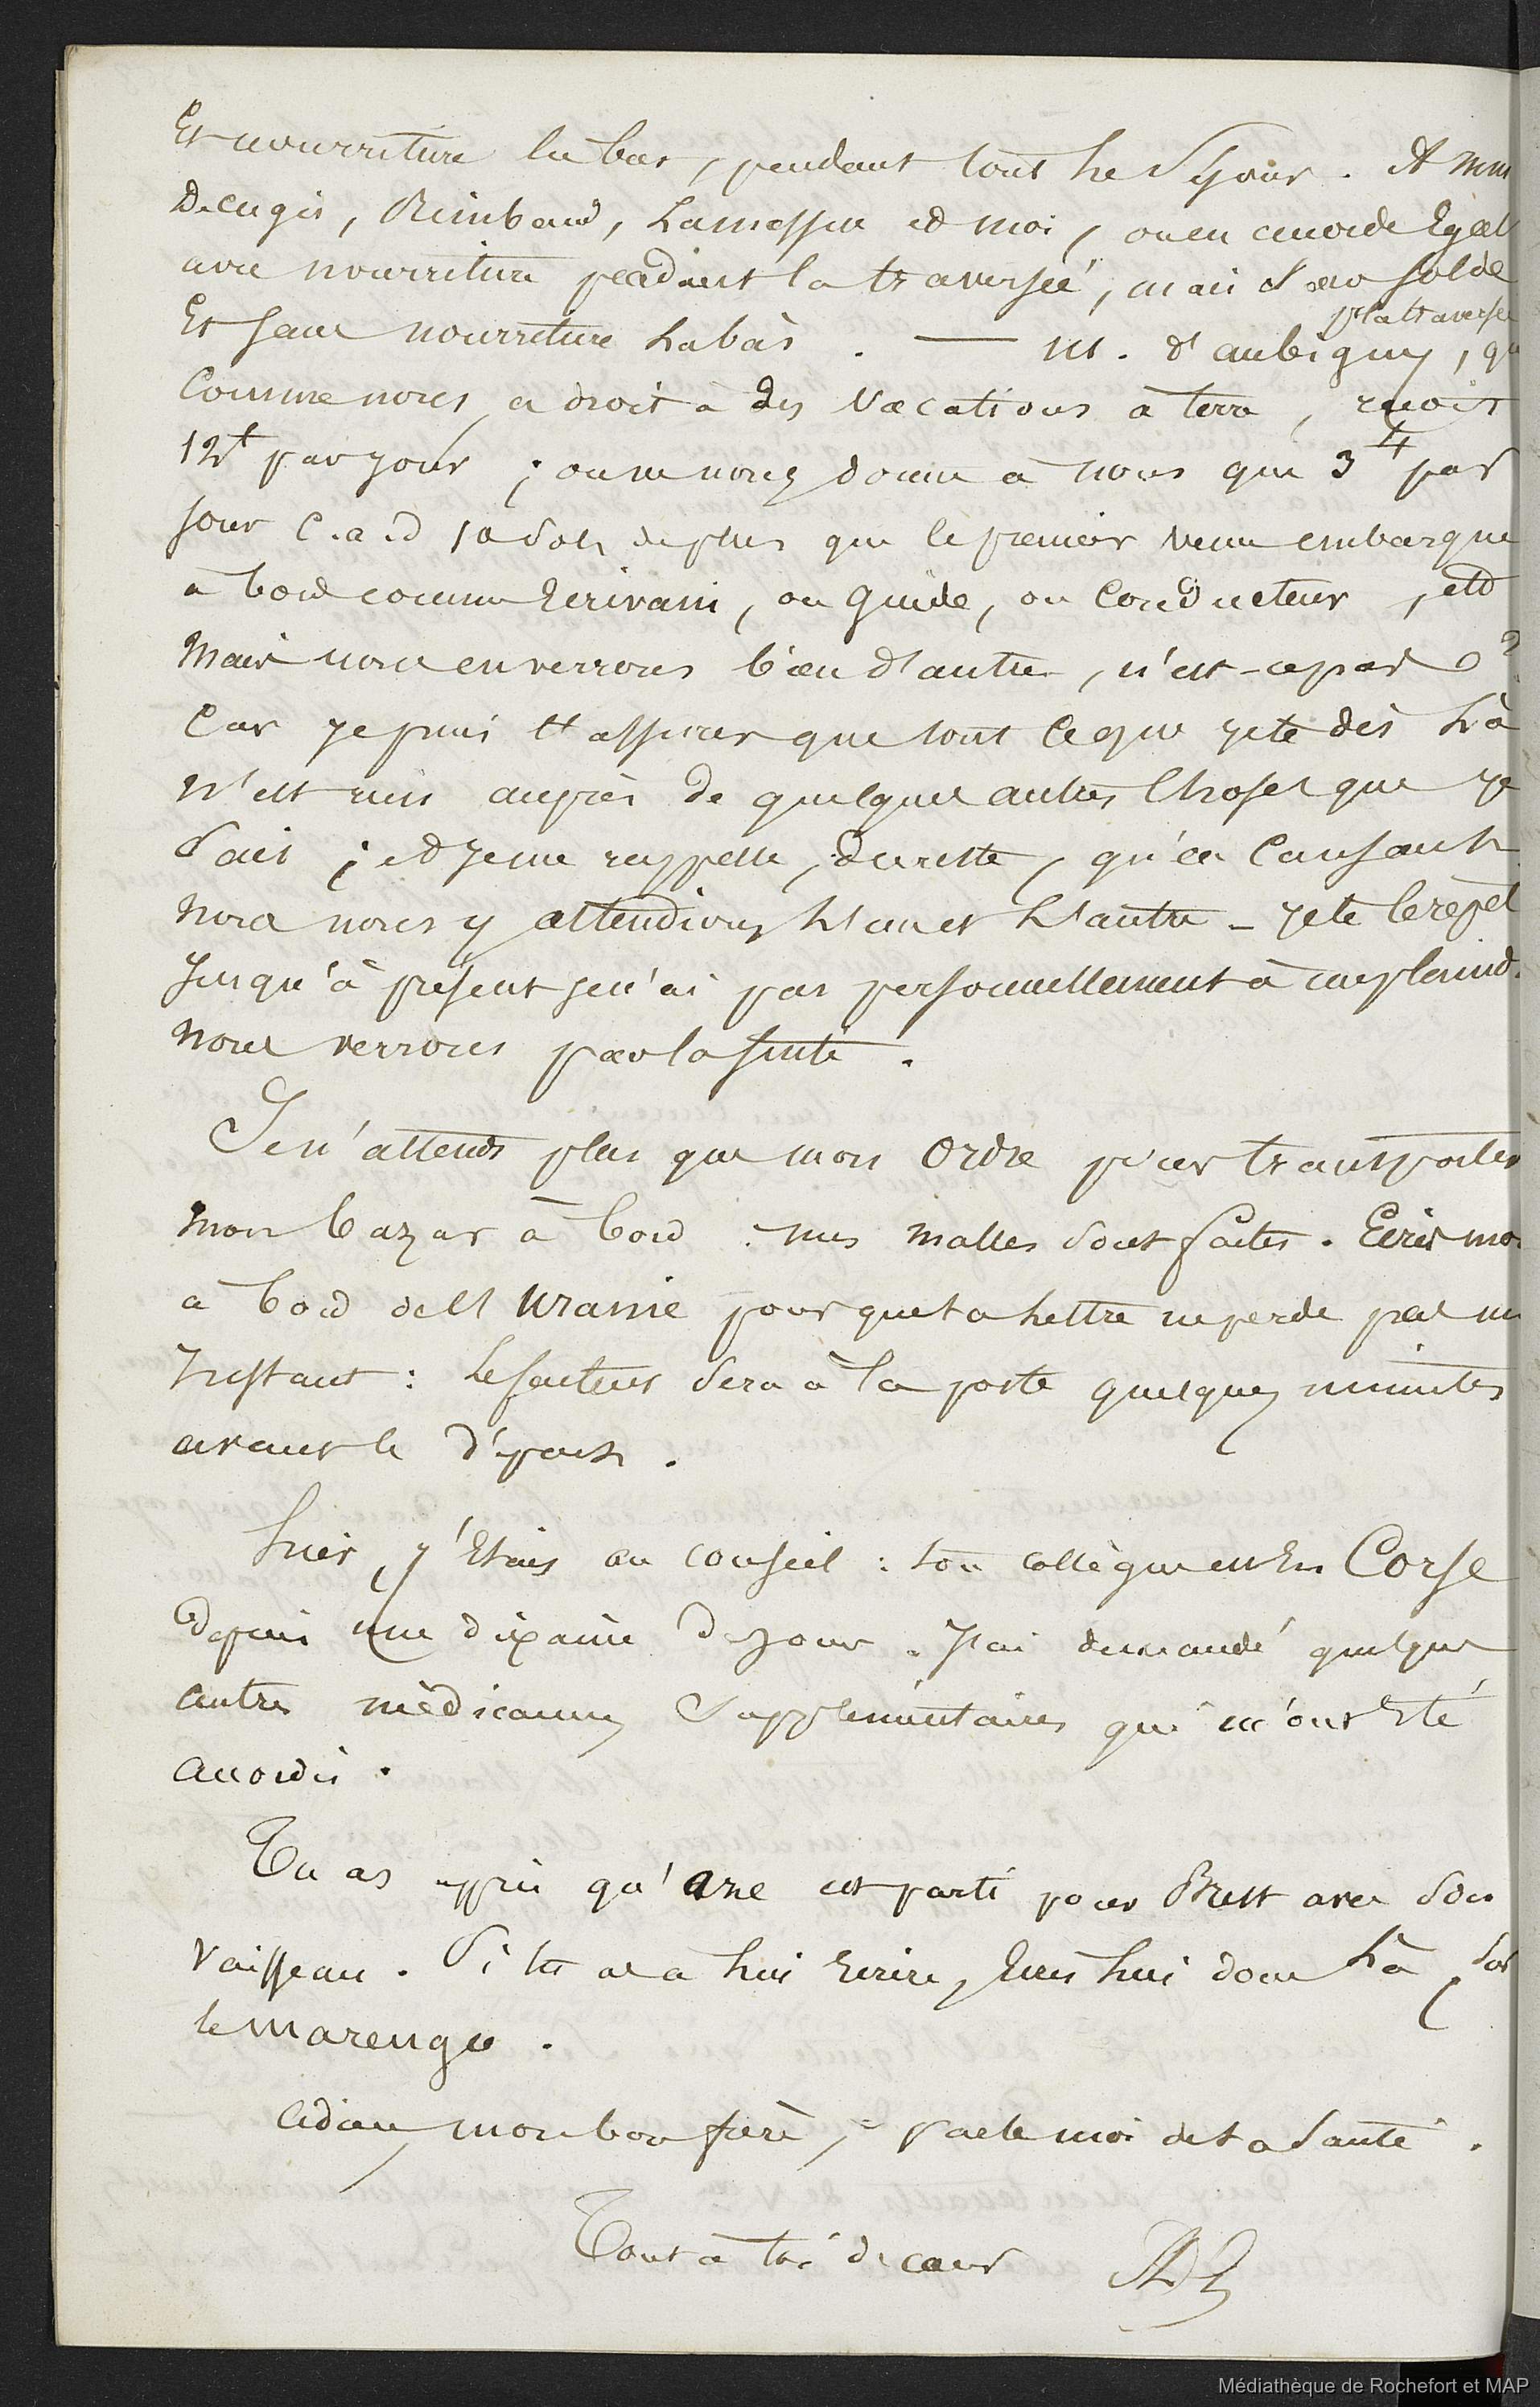 Et nourriture la bas, pendant tout le Séjour. A MM
Decugis, Rimbaud, Lamessen et moi, on en accorde Egal
avec nourriture pendant la traversée, mais Sans Solde
pr la traversée
Et Sans nourriture Labàs. — M. d'aubigny, qu
Comme nous, a droit à des Vacations à terre, reçoit
12f par jour; on ne nous donne à nous que 3f par
jour C.a.d 10 Sols de plus que le premier venu embarqué
à bord comme Ecrivain, ou Guide, ou Conducteur, etc
Mais nous en verrons bien d'autres, n'est-ce pas?
Car je puis t'assurer que tout ce que je te dis Là
N'est rien auprès de quelques autres Choses que je
Sais; et je me rappelle, du reste, qu'en Causant
Nous nous y attendions L'un et L'autre - je te le répèt
Jusqu'à présent je n'ai pas personnellement à me plaind.
Nous verrons par la Suite.
Je n'attends plus que mon Ordre pour transporter
Mon bazar à bord. mes Malles Sont faites. Ecris mo
à bord de l'Uranie pour que ta Lettre ne perde pas un
Instant: Le facteur Sera à la poste quelques minutes
avant le départ.
hier, j'Etais au Conseil: ton collègue est En Corse
depuis une dixaine de jours. J'ai demandé quelques
autres médicamens Supplémentaires qui m'ont Eté
accordés.
Tu as appris qu'Aze est parti pour Brest avec Son
Vaisseau. Si tu as a Lui Ecrire, Ecris Lui donc Là, Sur
le Marengo.
Adieu, mon bon frère, parle moi de ta Santé.
Tout à toi de cœur
Médiathèque de Rochefort et MAP